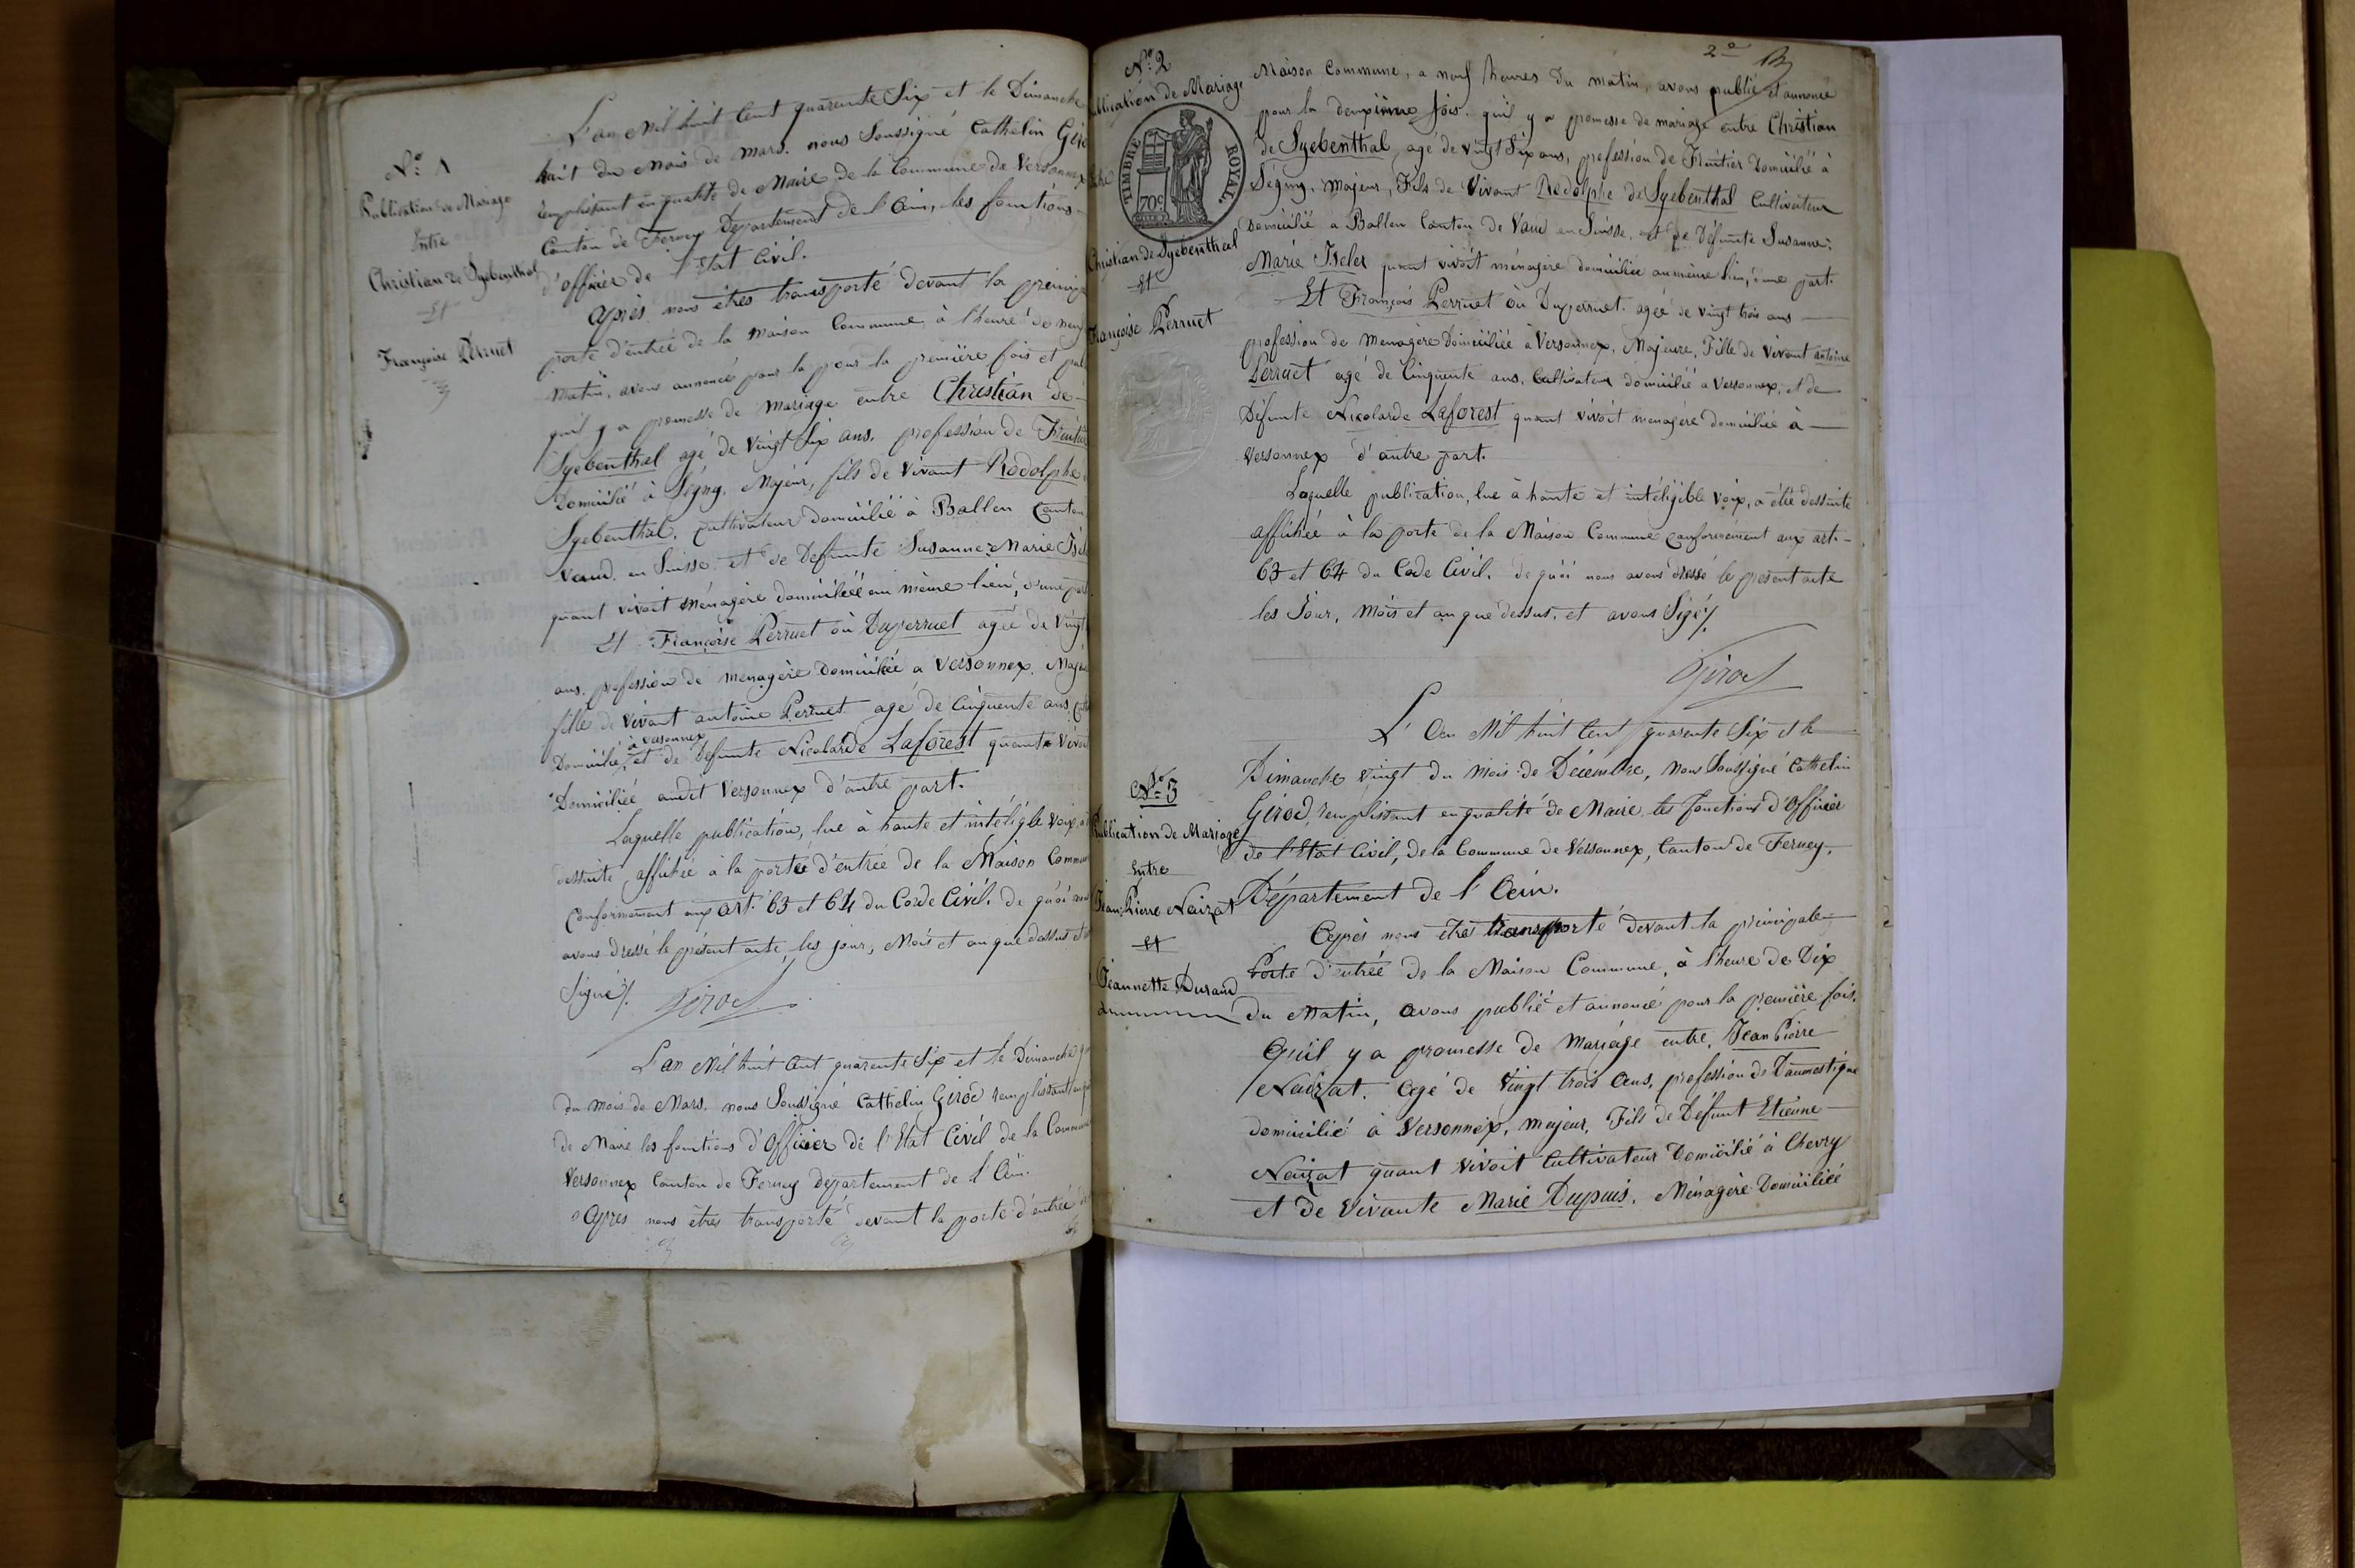 N.º 1
Publication de Mariage
Entre
Christian de Syebenthal
Et
Françoise Perruet
L'an Mil huit Cent quarente Six et le Dimanche
huit du Mois de mars. nous Soussigné Cathelin
remplissant en qualité de Maire de la Commune de Versonnex
Canton de Ferney Departement de l'Ain, les fonctions
d'officier de l'Etat Civil.
Après nous êtres transporté devant la
porte d'entrée de la maison Commune à l'heure de neuf
matin, avons annoncé pour la pour la première fois et
qu'il y a promesse de mariage entre Christian de
Syebenthal agé de vingt Six ans. profession de
Domicilié à Ségny, Majeur, fils de vivant Rodolphe
Syebenthal, cultivateur domicilié à Ballen Canton
Vaud en Suisse, et de Défunte Susanne Marie
quant vivoit Ménagère domiciliée au même lieu, d'une
Et Françoise Perruet où Duperruet agée de vingt
ans. profession de menagère domiciliée a Versonnex.
fille de vivant antoine Perruet agé de Cinquente ans
à Versonnex
Domicilié, et de Défunte Nicolarde Laforest quant
Domiciliée audit Versonnex d'autre part.
Laquelle publication, lue à haute et intéligible voix,
dessuite affichée à la porte d'entrée de la Maison
conformement aux art. 63 et 64 du Code Civil. de quoi
avons dressé le présent acte, les jour, Mois et an que dessus et
Signé /.
Girod
L'an Mil huit Cent quarente Six et le Dimanche
du mois de Mars. nous Soussigné Cathelin Girod remplissant
de Maire les fonctions d'Officier de l'Etat Civil de la
Versonnex Canton de Ferney departement de l'Ain.
Après nous êtres transporté devant la porte d'entrée
2º
N.º 2
Publication de Mariage
TIMBRE ROYAL.
70c
Christian de Syebenthal
Et
Françoise Perruet
Maison Commune, a neuf heures du matin, avons publié et annoncé
pour la deuxième fois. qu'il y a promesse de mariage entre Christian
de Syebenthal, agé de vingt Six ans, profession de Fruitier Domicilié à
Ségny, majeur, Fils de Vivant Rodolphe de Syebenthal Cultivateur
Domicilié a Ballen Canton de Vaud en Suisse, et de Défunte Susanne
Marie Iseler quant vivoit ménagère domiciliée au même lieu, d'une part.
Et François Perruet où Duperruet agée de vingt trois ans
profession de Menagère Domiciliée à Versonnex, Majeure, Fille de vivant antoine
Perruet agé de Cinquente ans, Cultivateur domicilié a Versonnex, et de
Défunte Nicolarde Laforest quant vivoit menagère domiciliée à
Versonnex d'autre part.
Laquelle publication, lue à haute et intéligible voix, a été dessuite
affichée à la porte de la Maison Commune conformément aux art.
63 et 64 du Code Civil. de quoi nous avons dressé le présent acte
les Jour, Mois et an que dessus, et avons Sigé /.
Girod
N.º 3
Publication de Mariage
Entre
Jean Pierre Naizat
Et
Jeannette Durand
L'An Mil huit Cent quarente Six et le
Dimanche vingt du Mois de Décembre, Nous Soussigné Cathelin
Girod, remplissant en qualité de Maire, les fonctions d'Officier
de l'Etat Civil, de la Commune de Versonnex, Canton de Ferney,
Département de l'Ain.
Après nous êtres transporté devant la principale
Porte d'entrée de la Maison Commune, à l'heure de Dix
du Matin, avons publié et annoncé pour la première fois.
Qu'il y a promesse de Mariage entre, Jean Pierre
Naizat. Agé de Vingt trois Ans, profession de Daumestique
domicilié à Versonnex, majeur, Fils de Défunt Etienne
Naizat quant vivoit Cultivateur Domicilié à Chevry
et de Vivante Marie Dupuis, Ménagère Domiciliée